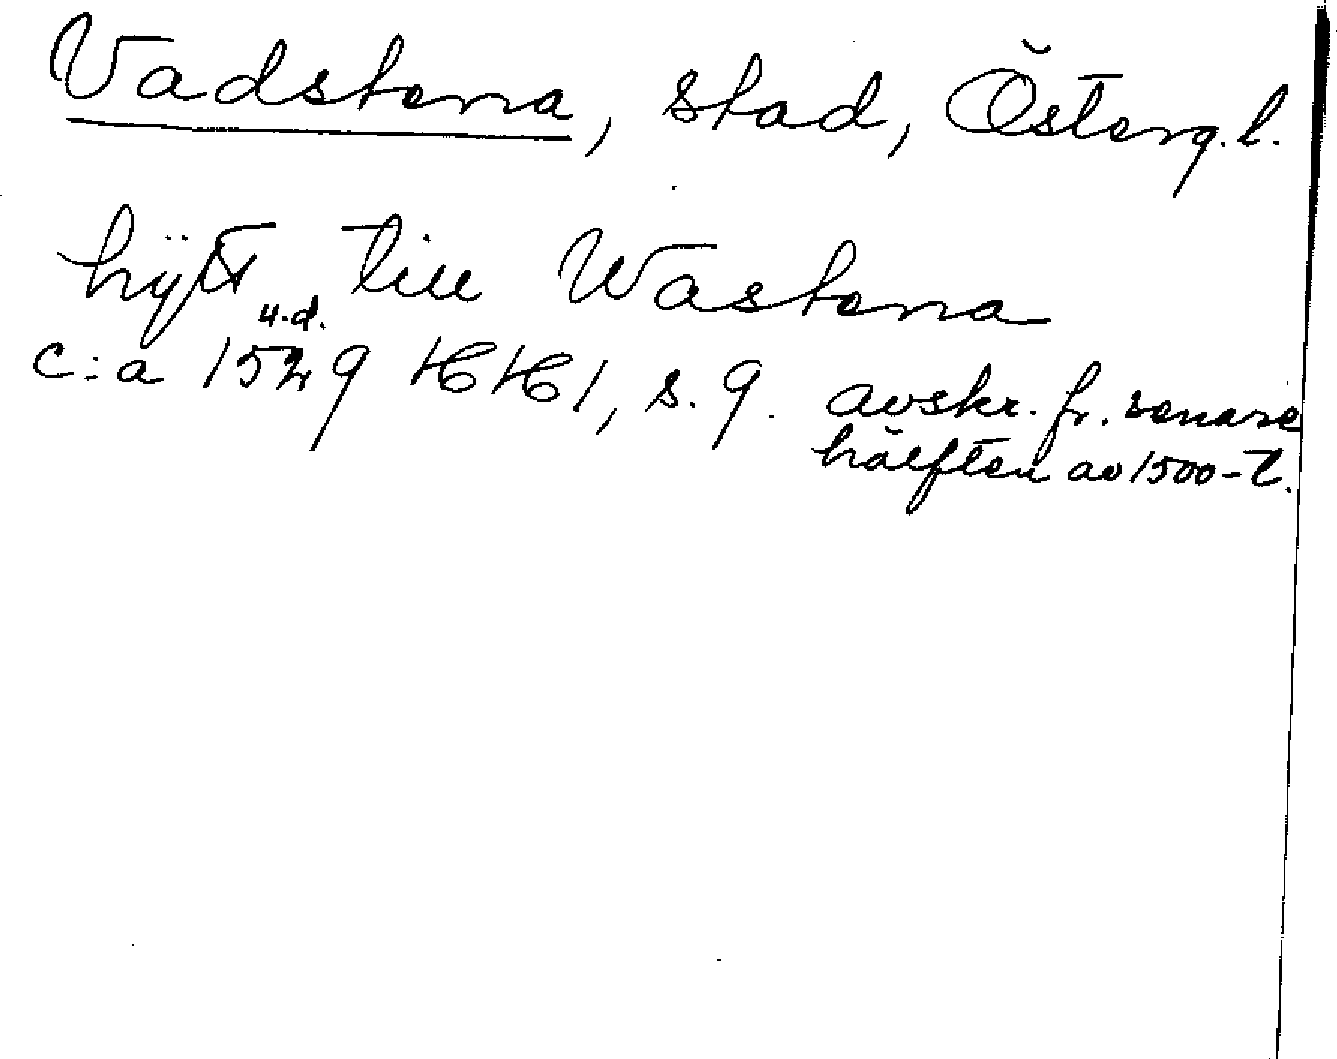 Vadstena, stad, Österg.l.
till Wastena
u.d.
c:a 1529 HH1, s. 9. avskr. fr. senare
hälften av 1500-t.